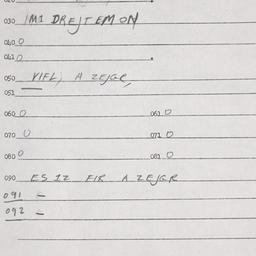 030 IMI DREJTEMON
040 0
041 0
050 VIFL, A ZEJGR,
051
060 0 061 0
070 0 071 0
080 0 081 0
090 ES 12 FIR A ZEJGR
091 -
092 -